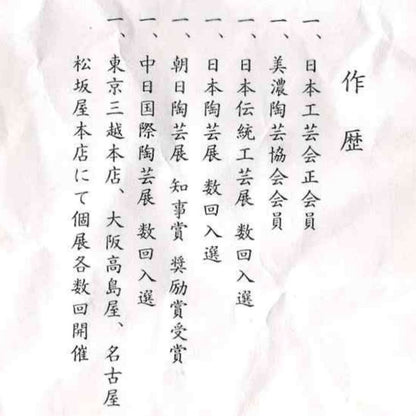 作歴
一、日本工芸会正会員
一、美濃陶芸協会会員
一、日本伝統工芸展 数回入選
一、日本陶芸展 数回入選
一、朝日陶芸展 知事賞 奨励賞受賞
一、中日国際陶芸展 数回入選
一、東京三越本店、大阪高島屋、名古屋
松坂屋本店にて個展各数回開催